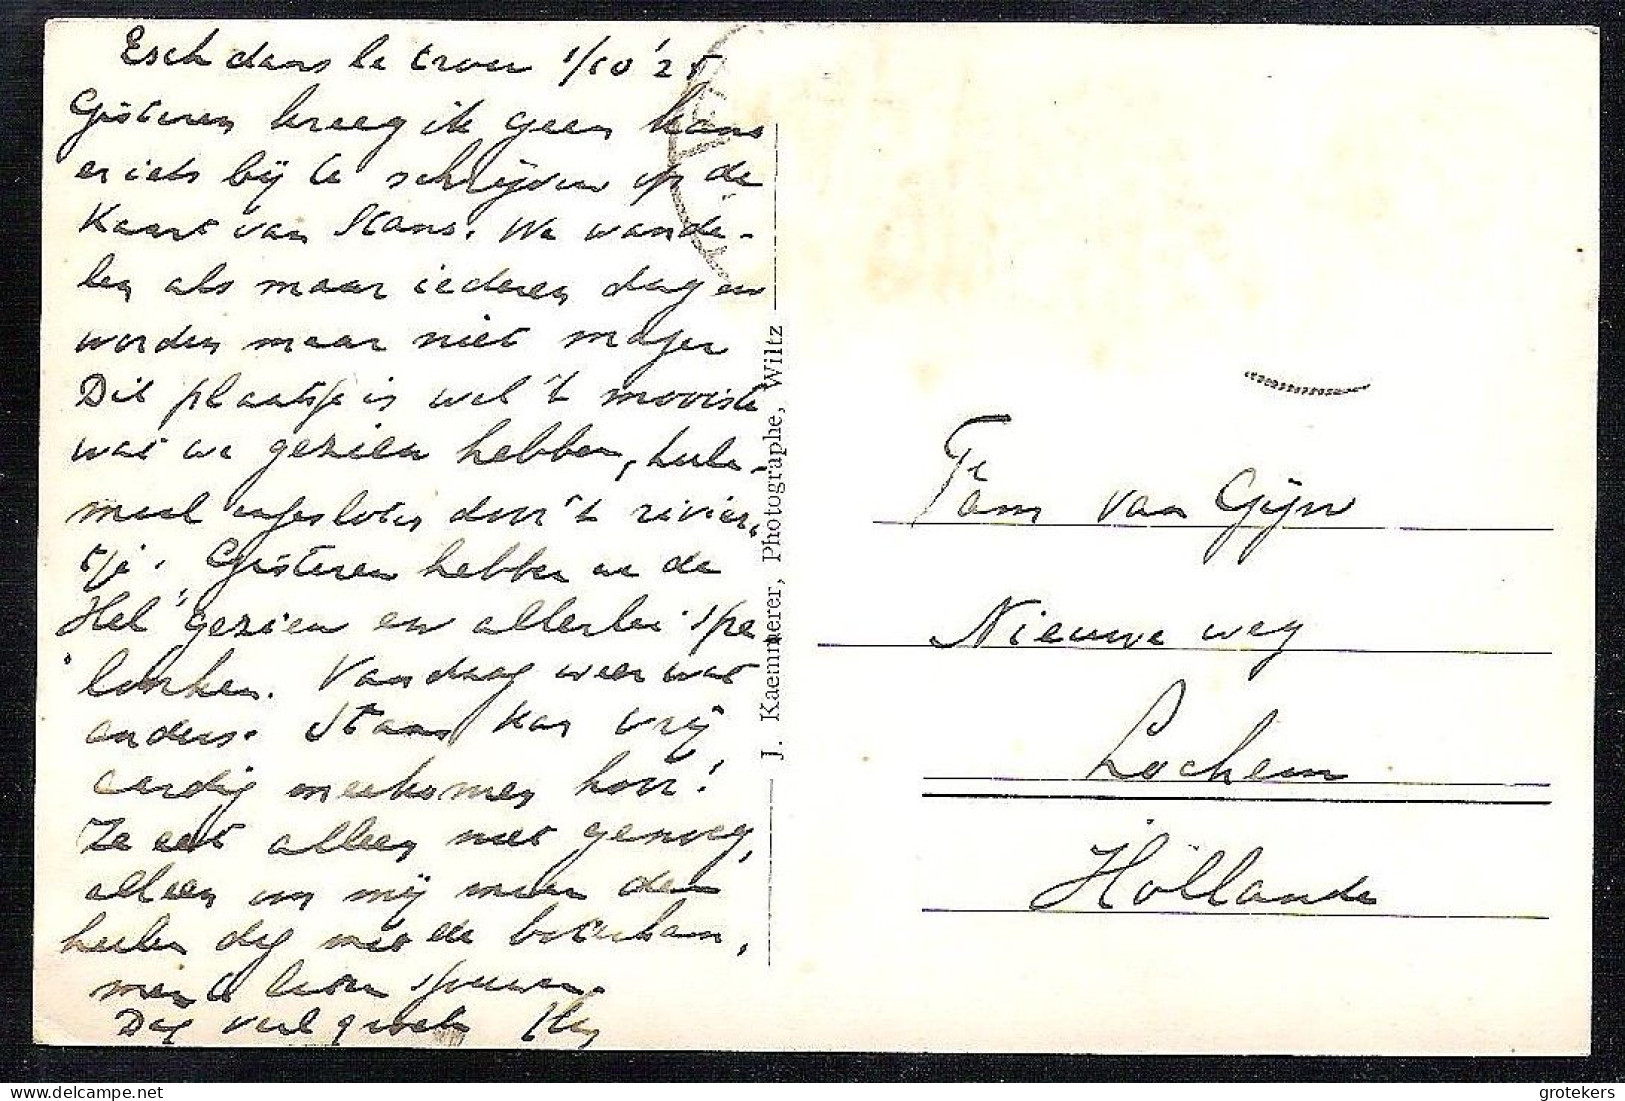 Esch dans le trou 1/10 '25
Gisteren kreeg ik geen kans
er iets bij te schrijven op de
Kaart van Stans. We wande-
len als maar iederen dag en
worden maar niet mager
Dit plaatsje is wel 't mooiste
wat we gezien hebben, hele-
maal ingesloten door 't rivier-
tje. Gisteren hebben we de
"Hel" gezien en allerlei spe
lonken. Vandaag weer wat
anders. Stans kan vrij
aardig meekomen hoor!
Ze eet alleen niet genoeg,
alleen om mij maar den
heelen dag met de boterham,
men te laten
Dag veel groeten
J. Kaemmerer, Photographe, Wiltz
Fam van Gijn
Nieuwe weg
Lochem
Hollande
grotekers